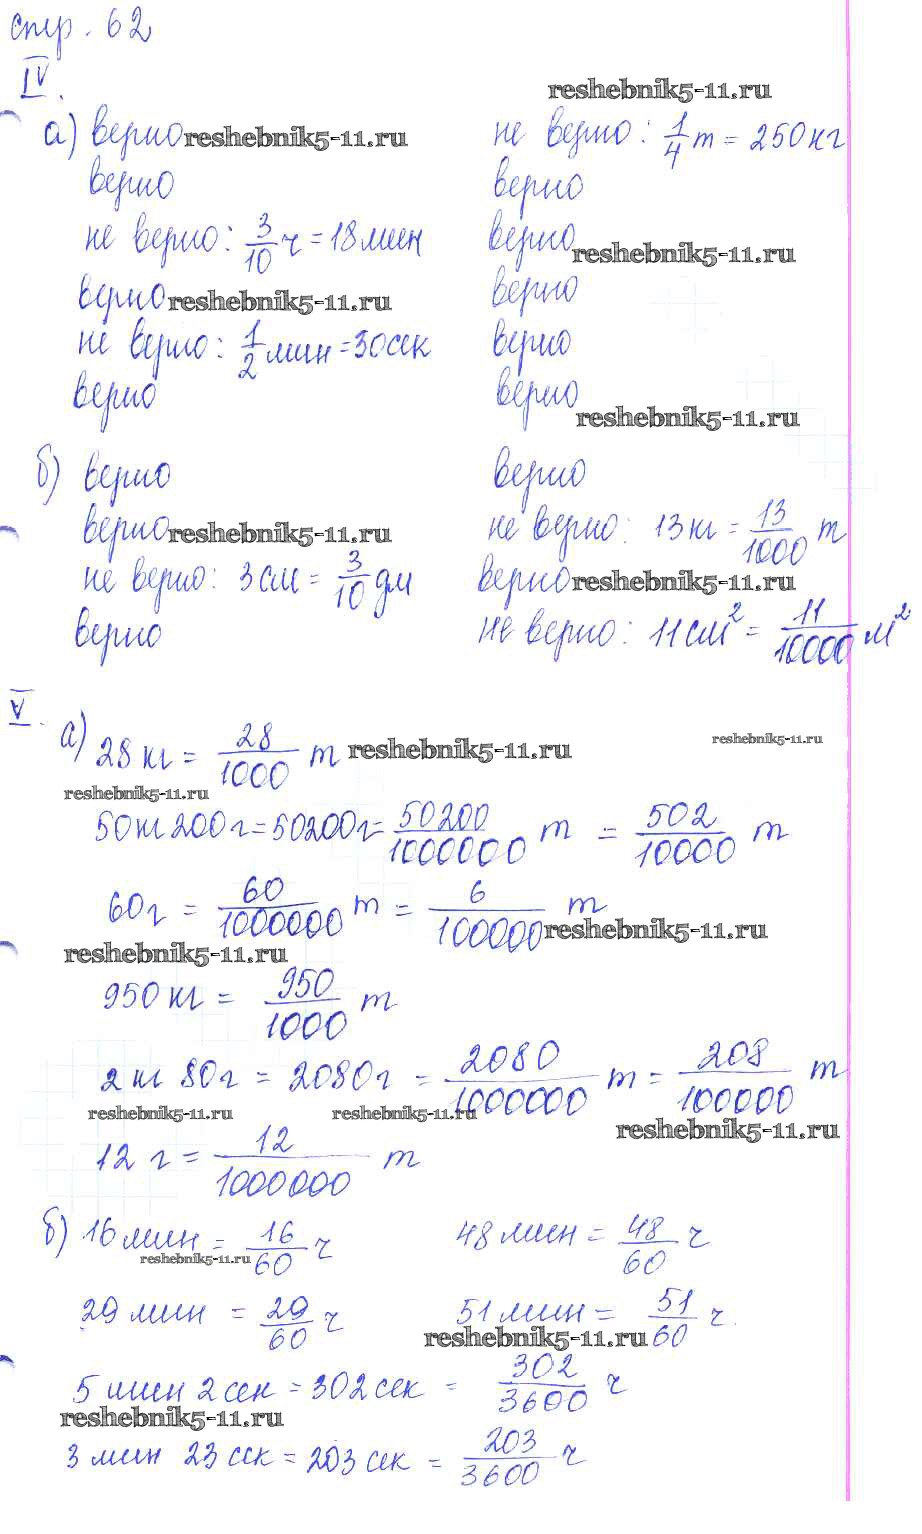 стр. 62
IV.
reshebnik5-11.ru
а) верно reshebnik5-11.ru не верно: 1/4 т = 250 кг
верно верно
не верно: 3/10 ч = 18 мин верно reshebnik5-11.ru
верно reshebnik5-11.ru верно
не верно: 1/2 мин = 30 сек верно
верно верно
reshebnik5-11.ru
б) верно верно
верно reshebnik5-11.ru не верно: 13 кг = 13/1000 т
не верно: 3 см = 3/10 дм верно reshebnik5-11.ru
верно не верно: 11 см² = 11/10000 м²
V.
а) 28 кг = 28/1000 т reshebnik5-11.ru reshebnik5-11.ru
reshebnik5-11.ru
50 кг 200 г = 50200 г = 50200/1000000 т = 502/10000 т
60 г = 60/1000000 т = 6/100000 т reshebnik5-11.ru
reshebnik5-11.ru
950 кг = 950/1000 т
2 кг 80 г = 2080 г = 2080/1000000 т = 208/100000 т
reshebnik5-11.ru reshebnik5-11.ru reshebnik5-11.ru
12 г = 12/1000000 т
б) 16 мин = 16/60 ч 48 мин = 48/60 ч
reshebnik5-11.ru
29 мин = 29/60 ч 51 мин = 51/60 ч
reshebnik5-11.ru
5 мин 2 сек = 302 сек = 302/3600 ч
reshebnik5-11.ru
3 мин 23 сек = 203 сек = 203/3600 ч